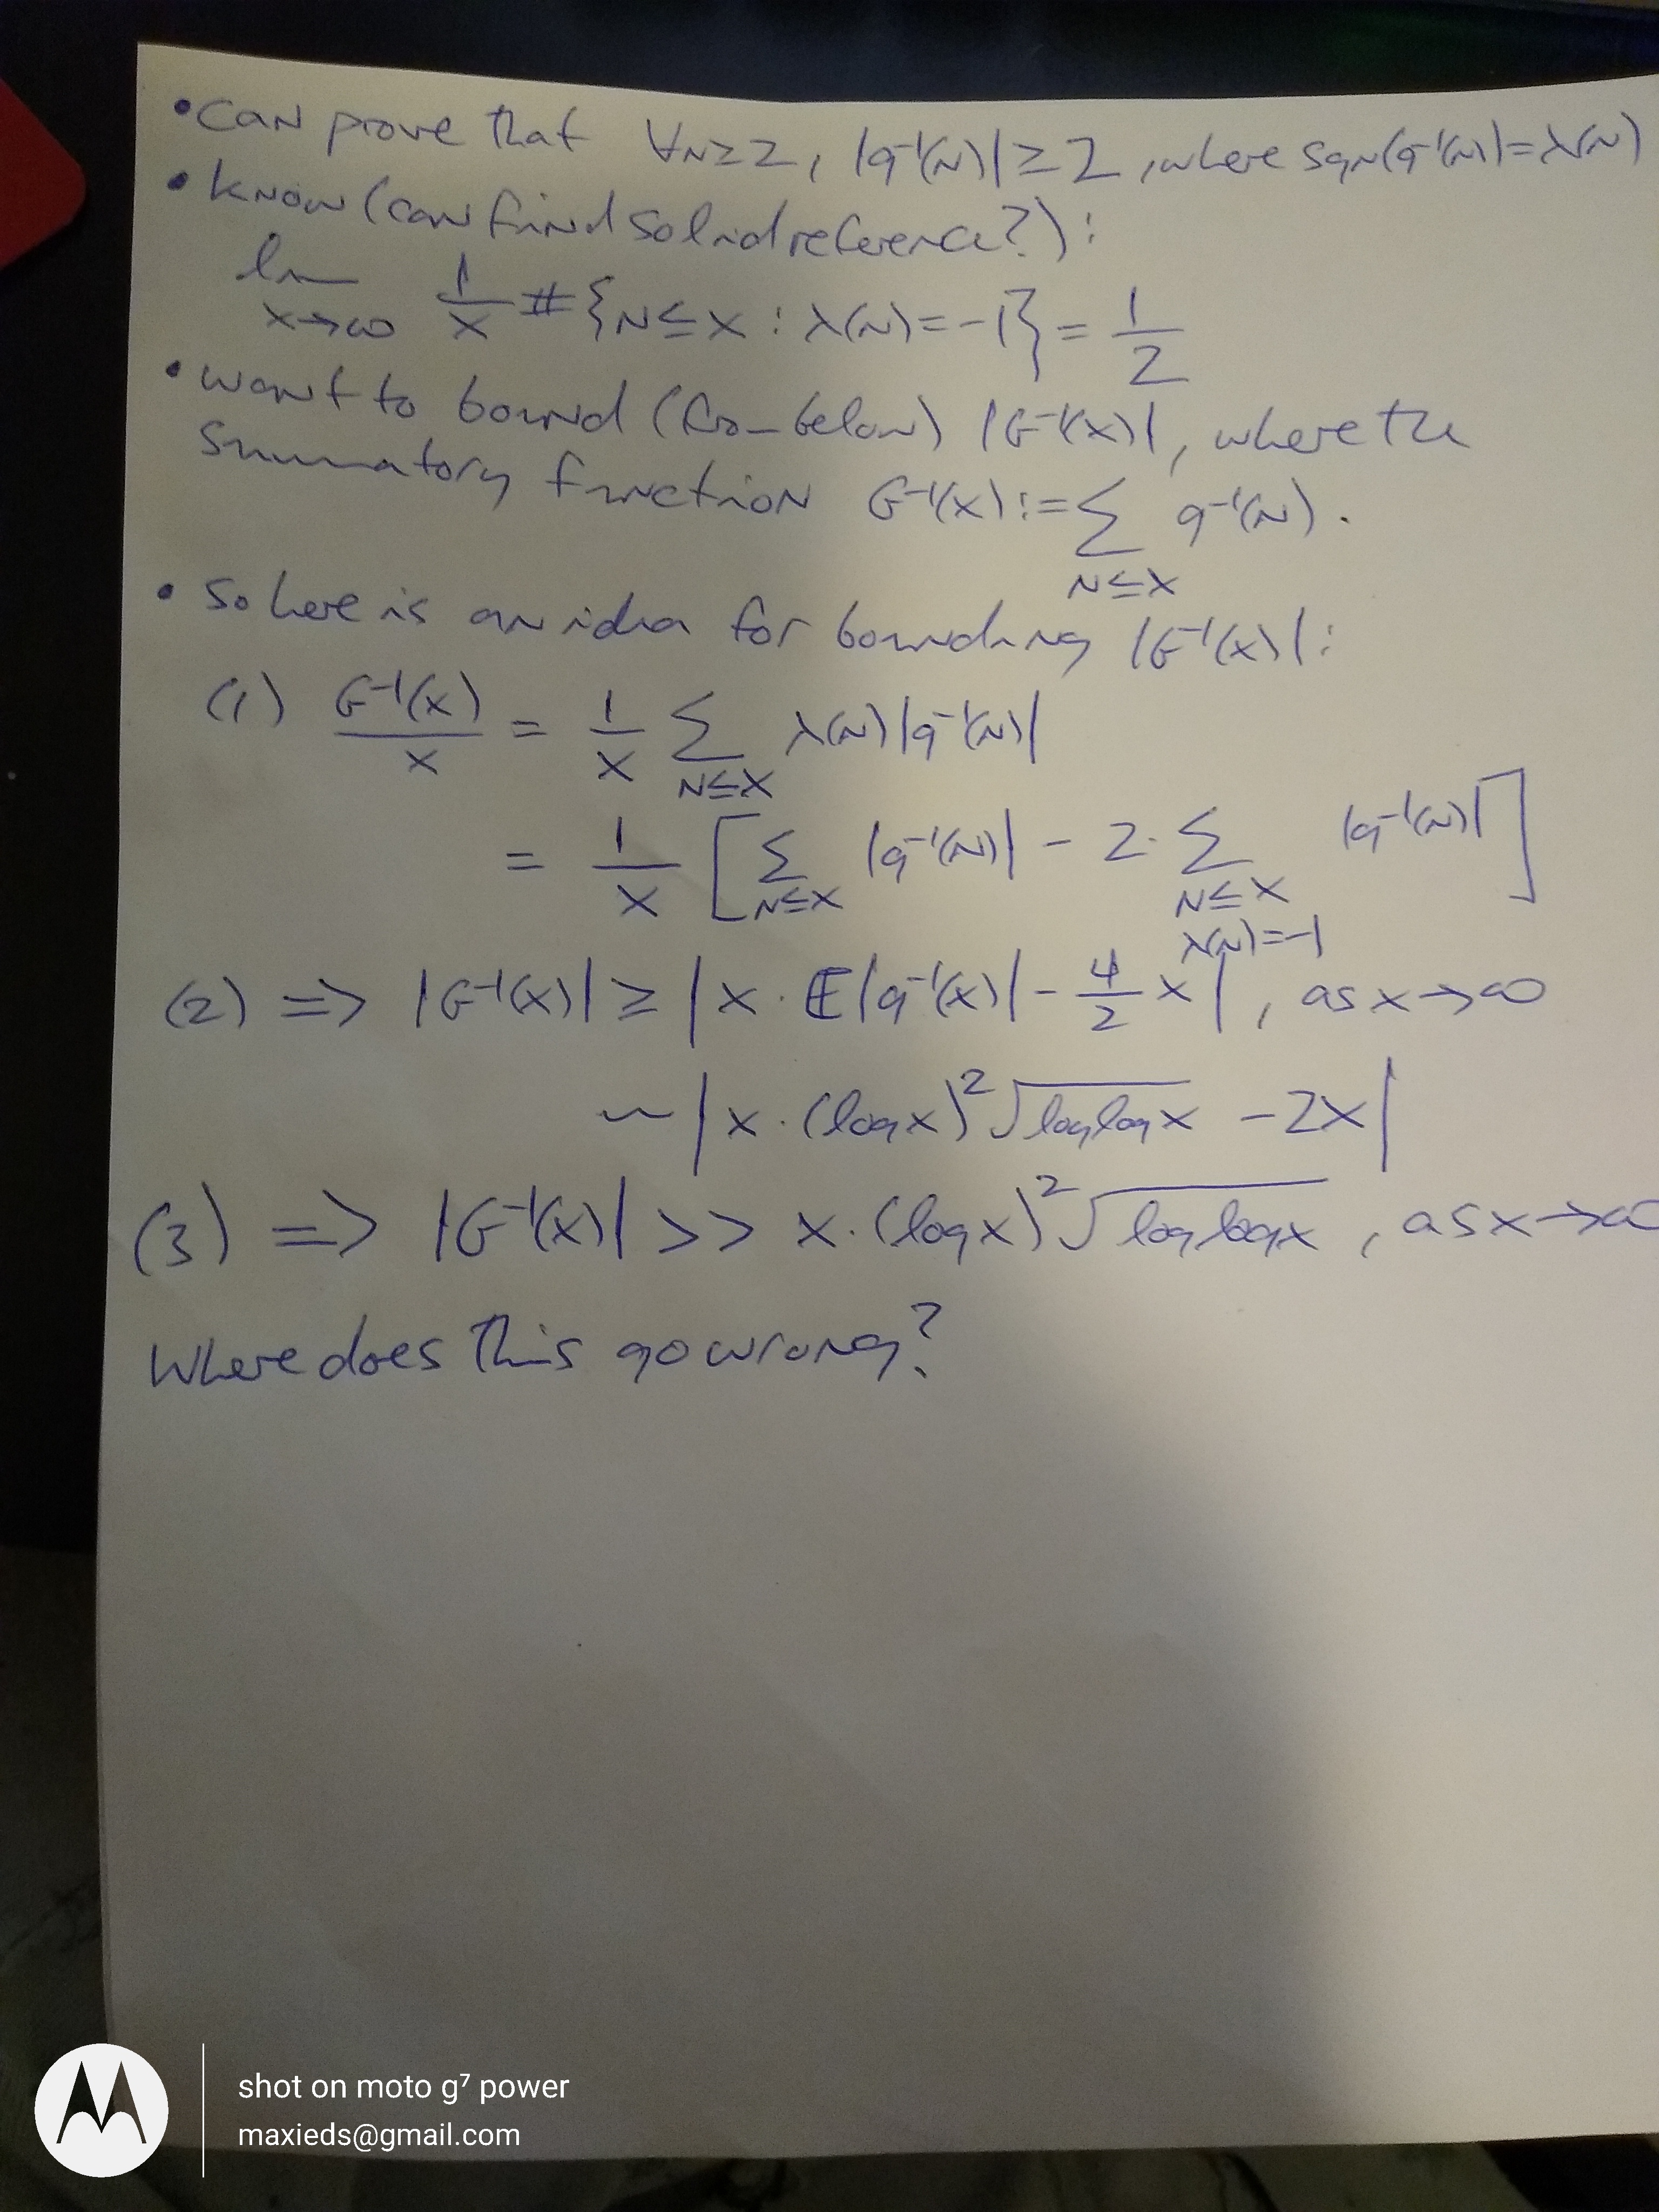 • Can prove that ∀n≥2, |g⁻¹(n)|≥2, where sgn(g⁻¹(n))=λ(n)
• know (can find solid reference?):
lim_{x→∞} 1/x #{n≤x : λ(n)=-1} = 1/2
• want to bound (from below) |G⁻¹(x)|, where the
summatory function G⁻¹(x) := ∑_{n≤x} g⁻¹(n).
• So here is an idea for bounding |G⁻¹(x)|:
(1) G⁻¹(x)/x = 1/x ∑_{n≤x} λ(n)|g⁻¹(n)|
= 1/x [∑_{n≤x} |g⁻¹(n)| - 2·∑_{n≤x, λ(n)=-1} |g⁻¹(n)|]
(2) ⇒ |G⁻¹(x)| ≥ |x·𝔼|g⁻¹(x)| - 4/2 x|, as x→∞
~ |x·(log x)²√(log log x) - 2x|
(3) ⇒ |G⁻¹(x)| >> x·(log x)²√(log log x), as x→∞
Where does this go wrong?
shot on moto g⁷ power
maxieds@gmail.com